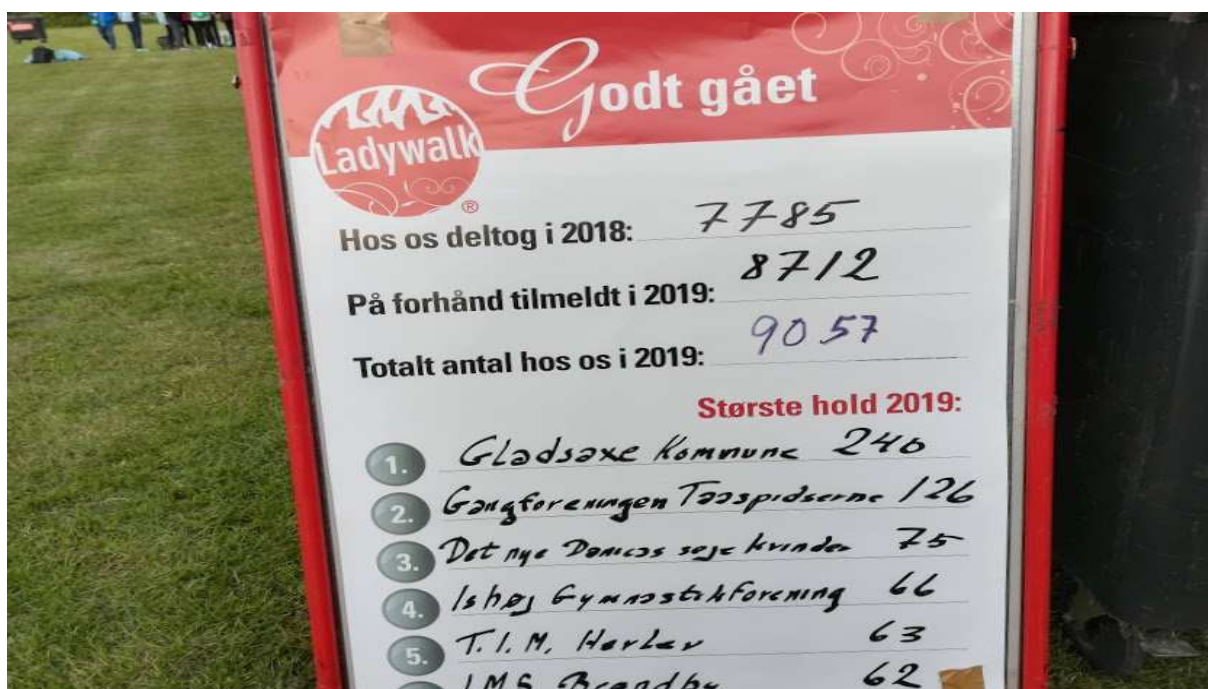 Godt gået
Ladywalk
®
Hos os deltog i 2018: 7785
På forhånd tilmeldt i 2019: 8712
Totalt antal hos os i 2019: 9057
Største hold 2019:
1. Gladsaxe Kommune 240
2. Gangforeningen Taaspidserne 126
3. Det nye Damcos seje kvinder 75
4. Ishøj Gymnastikforening 66
5. T.I.M. Herlev 63
IMS Brøndby 62